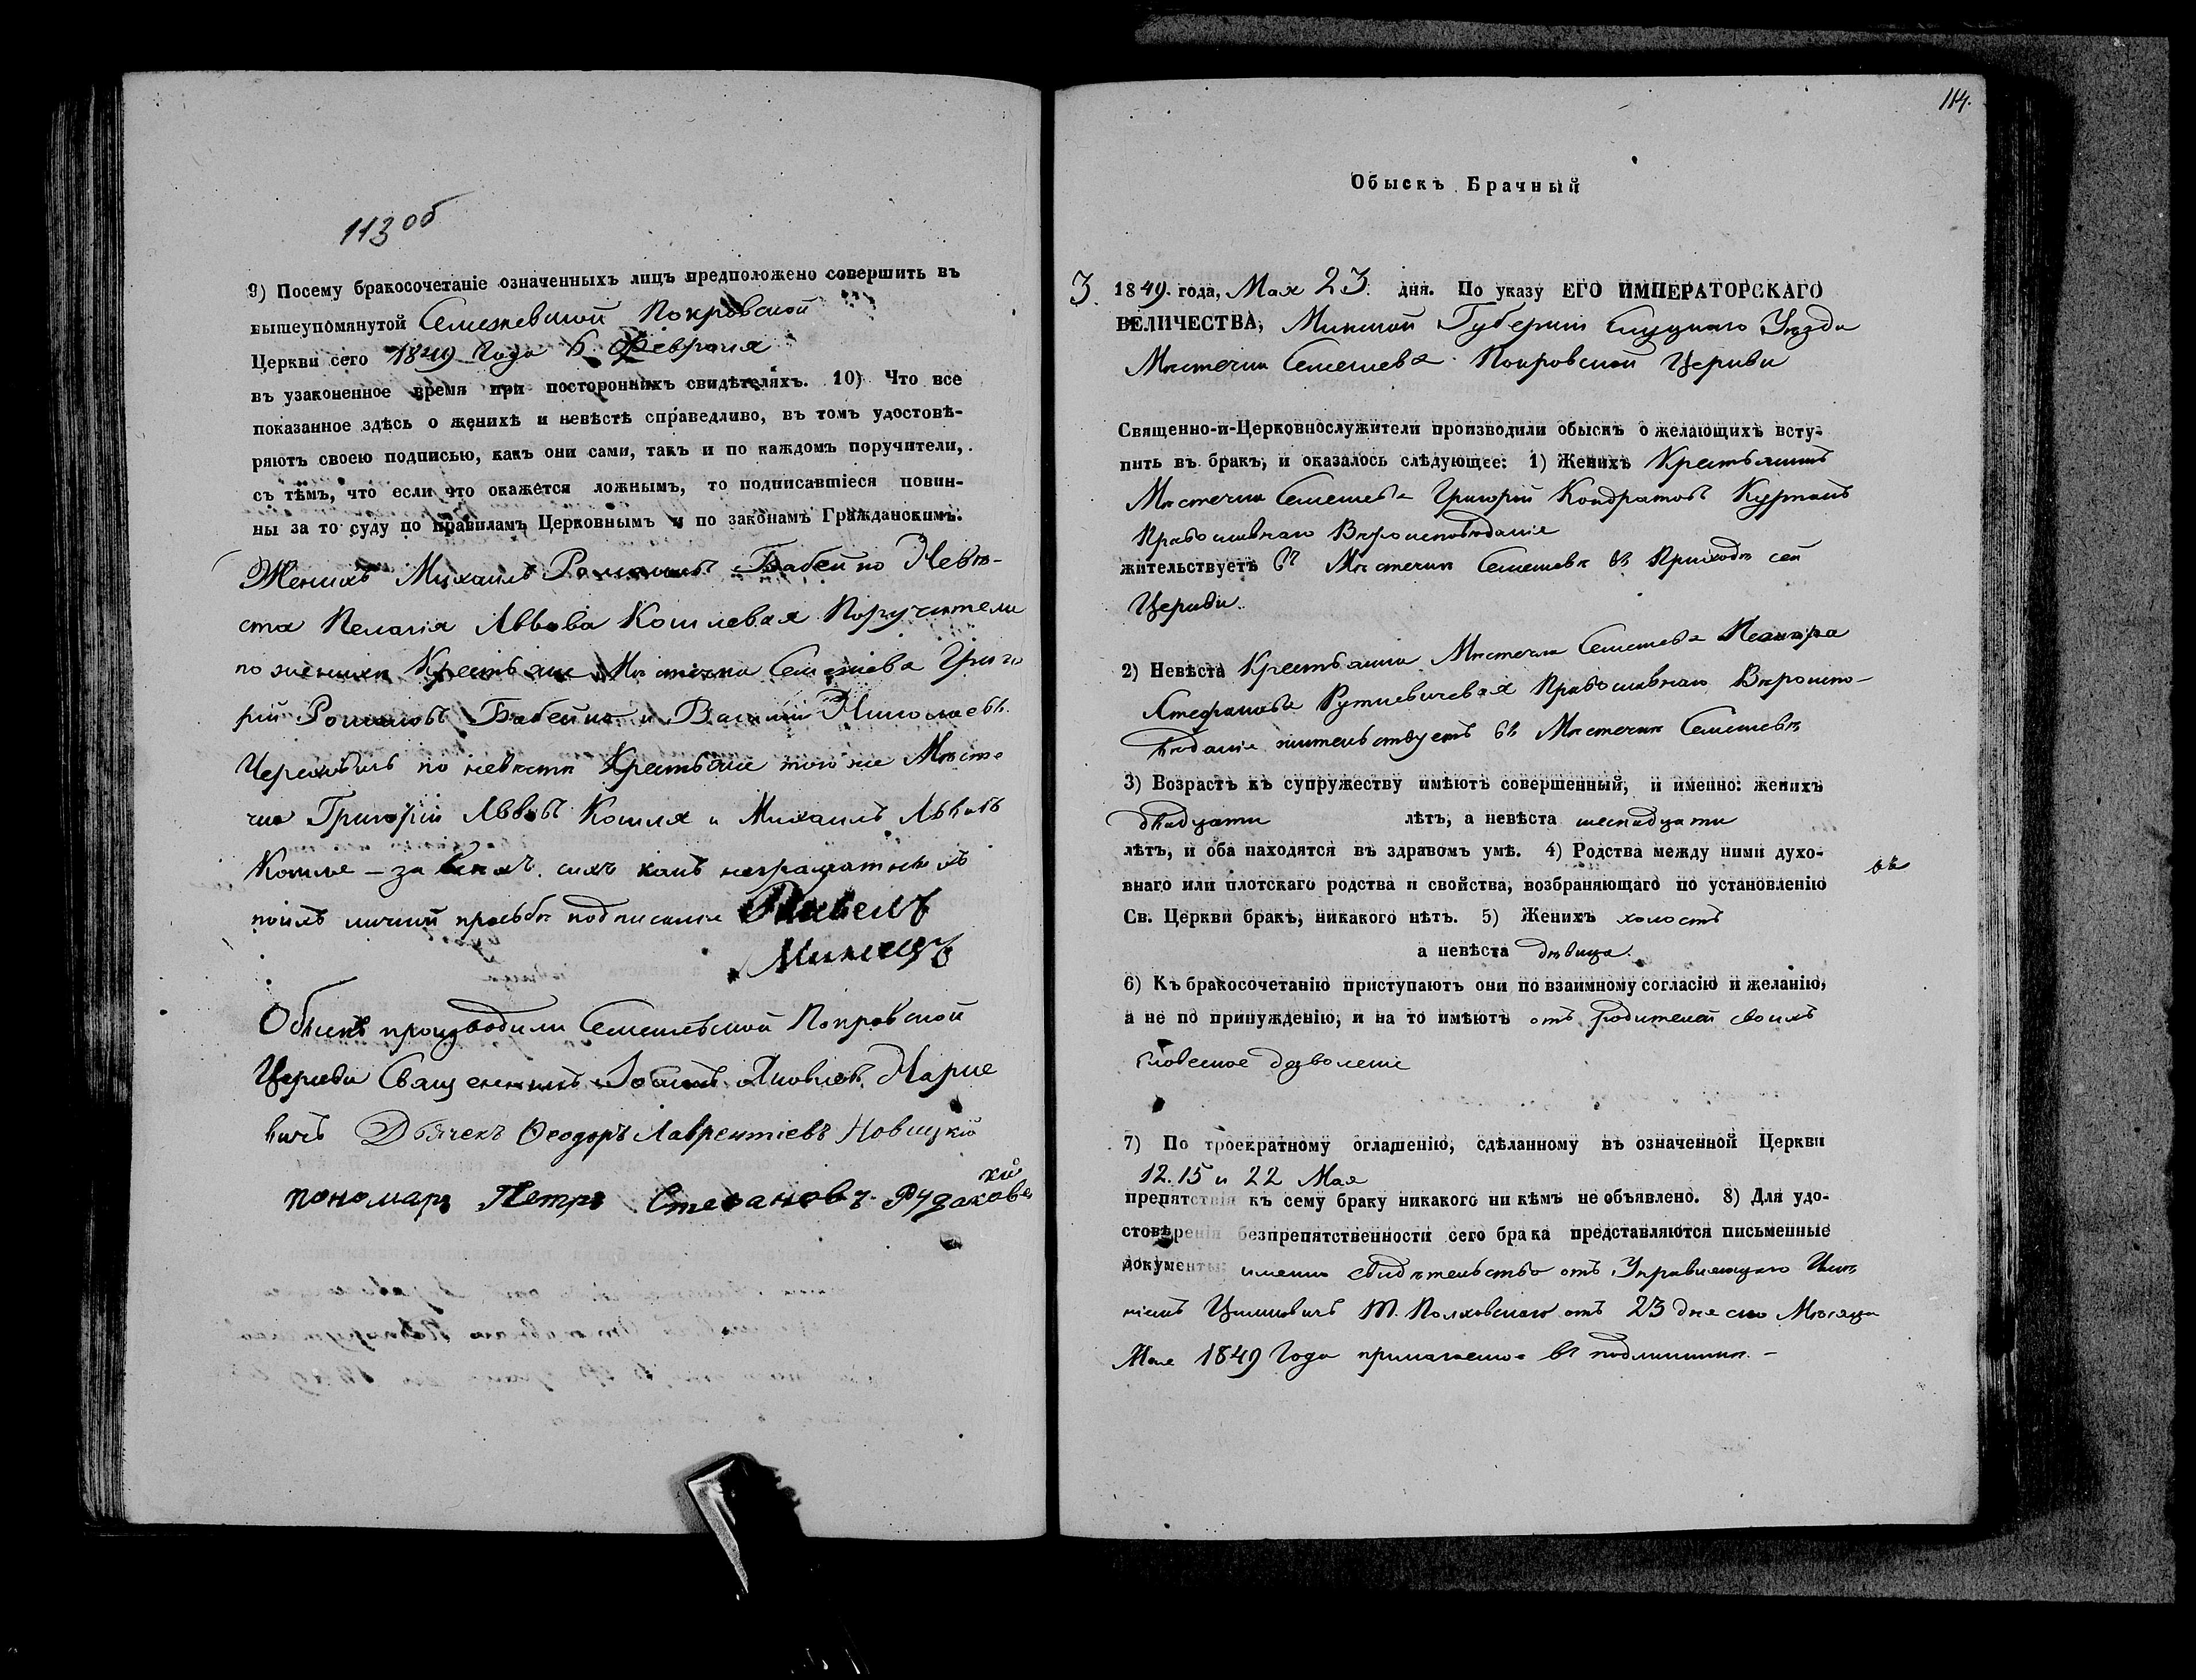 113 об
9) Посему бракосочетаніе означенныхъ лицъ предположено совершить въ
вышеупомянутой Семежевской Покровской
Церкви сего 1849 Года 6 Февраля
въ узаконенное время при постороннихъ свидѣтеляхъ. 10) Что все
показанное здѣсь о женихѣ и невѣстѣ справедливо, въ томъ удостовѣ-
ряютъ своею подписью, какъ они сами, такъ и по каждомъ поручители,
съ тѣмъ, что если что окажется ложнымъ, то подписавшіеся повин-
ны за то суду по правиламъ Церковнымъ и по законамъ Гражданскимъ.
Женихъ Михаилъ Романовъ Бабейко Невѣ-
ста Пелагія Львова Кошлевая Поручители
по женихѣ Крестьяне Мѣстечка Семежева Григо
рій Романовъ Бабейко и Василій Николаевъ
по невѣстѣ Крестьяне того же Мѣсте
чка Григорій Львовъ Кошля и Михаилъ Львовъ
Кошля – за всѣхъ сихъ какъ неграматныхъ
по ихъ личной прозьбѣ подписался Павелъ
Обыскъ производили Семежевской Покровской
Церкви Священникъ Іоаннъ Яковлевъ Нарке
вичъ Дьячекъ Ѳеодоръ Лаврентіевъ Новицкій
пономаръ Петръ Стефановъ Рудаковскій
114.
Обыскъ Брачный
3. 1849. года, Мая 23. дня. По указу ЕГО ИМПЕРАТОРСКАГО
ВЕЛИЧЕСТВА, Минской Губерніи Слуцкаго Уѣзда
Мѣстечка Семежева Покровской Церкви
Священно-и-Церковнослужители производили обыскъ о желающихъ всту-
пить въ бракъ, и оказалось слѣдующее: 1) Женихъ Крестьянинъ
Мѣстечка Семежева Григорій Кондратовъ
Православнаго Вѣроисповѣданія
жительствуетъ въ Мѣстечкѣ Семежевѣ въ Приходѣ сей
Церкви.
2) Невѣста Крестьянка Мѣстечка Семежева
Стефанова Руткевичевая Православнаго Вѣроиспо-
вѣданія жительствуетъ въ Мѣстечкѣ Семежевѣ
3) Возрастъ къ супружеству имѣютъ совершенный, и именно: женихъ
двадцати лѣтъ, а невѣста шеснадцати
лѣтъ, и оба находятся въ здравомъ умѣ. 4) Родства между ними духо-
внаго или плотскаго родства и свойства, возбраняющаго по установленію
Св. Церкви бракъ, никакого нѣтъ. 5) Женихъ холостъ
а невѣста дѣвица.
6) Къ бракосочетанію приступаютъ они по взаимному согласію и желанію,
а не по принужденію, и на то имѣютъ отъ родителей своихъ
словесное дозволеніе
7) По троекратному оглашенію, сдѣланному въ означенной Церкви
12. 15 и 22 Мая
препятствія къ сему браку никакого ни кѣмъ не объявлено. 8) Для удо-
стовѣренія безпрепятственности сего брака представляются письменные
документы: именно свидѣтельство отъ Управляющаго Имѣ
ніемъ отъ 23 дня сего Мѣсяца
Мая 1849 Года въ подлинникѣ. –